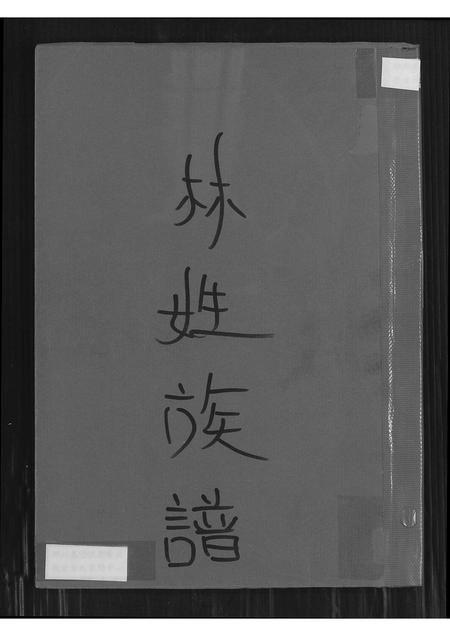 林姓族譜